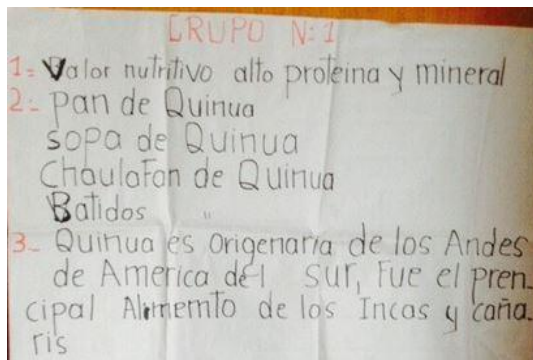 GRUPO N:1
1= Valor nutritivo alto proteina y mineral
2- Pan de Quinua
sopa de Quinua
Chaulafan de Quinua
Batidos "
3- Quinua es origenaria de los Andes
de America del Sur, Fue el pren-
cipal Alimemto de los Incas y caña-
ris